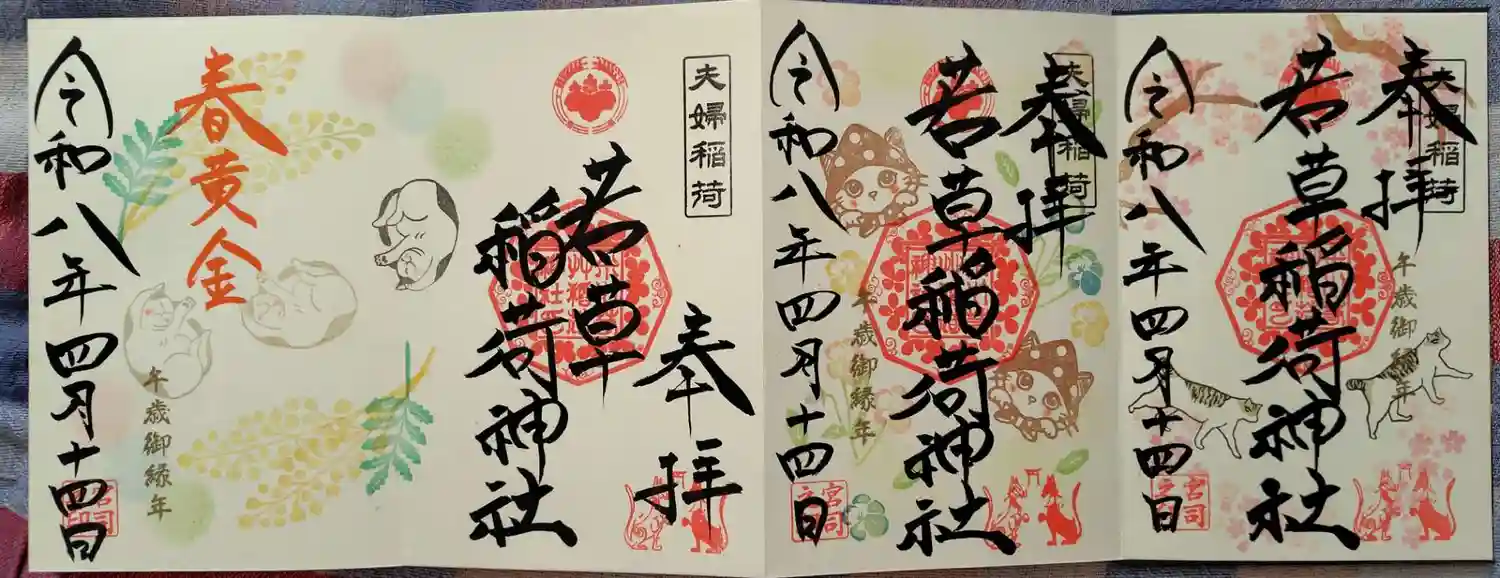 夫婦稲荷
奉拝
若草稲荷神社
令和八年四月十四日
午歳御縁年
宮司之印
夫婦稲荷
奉拝
若草稲荷神社
令和八年四月十四日
午歳御縁年
宮司之印
夫婦稲荷
奉拝
若草
稲荷神社
春黄金
午歳御縁年
令和八年四月十四日
宮司之印